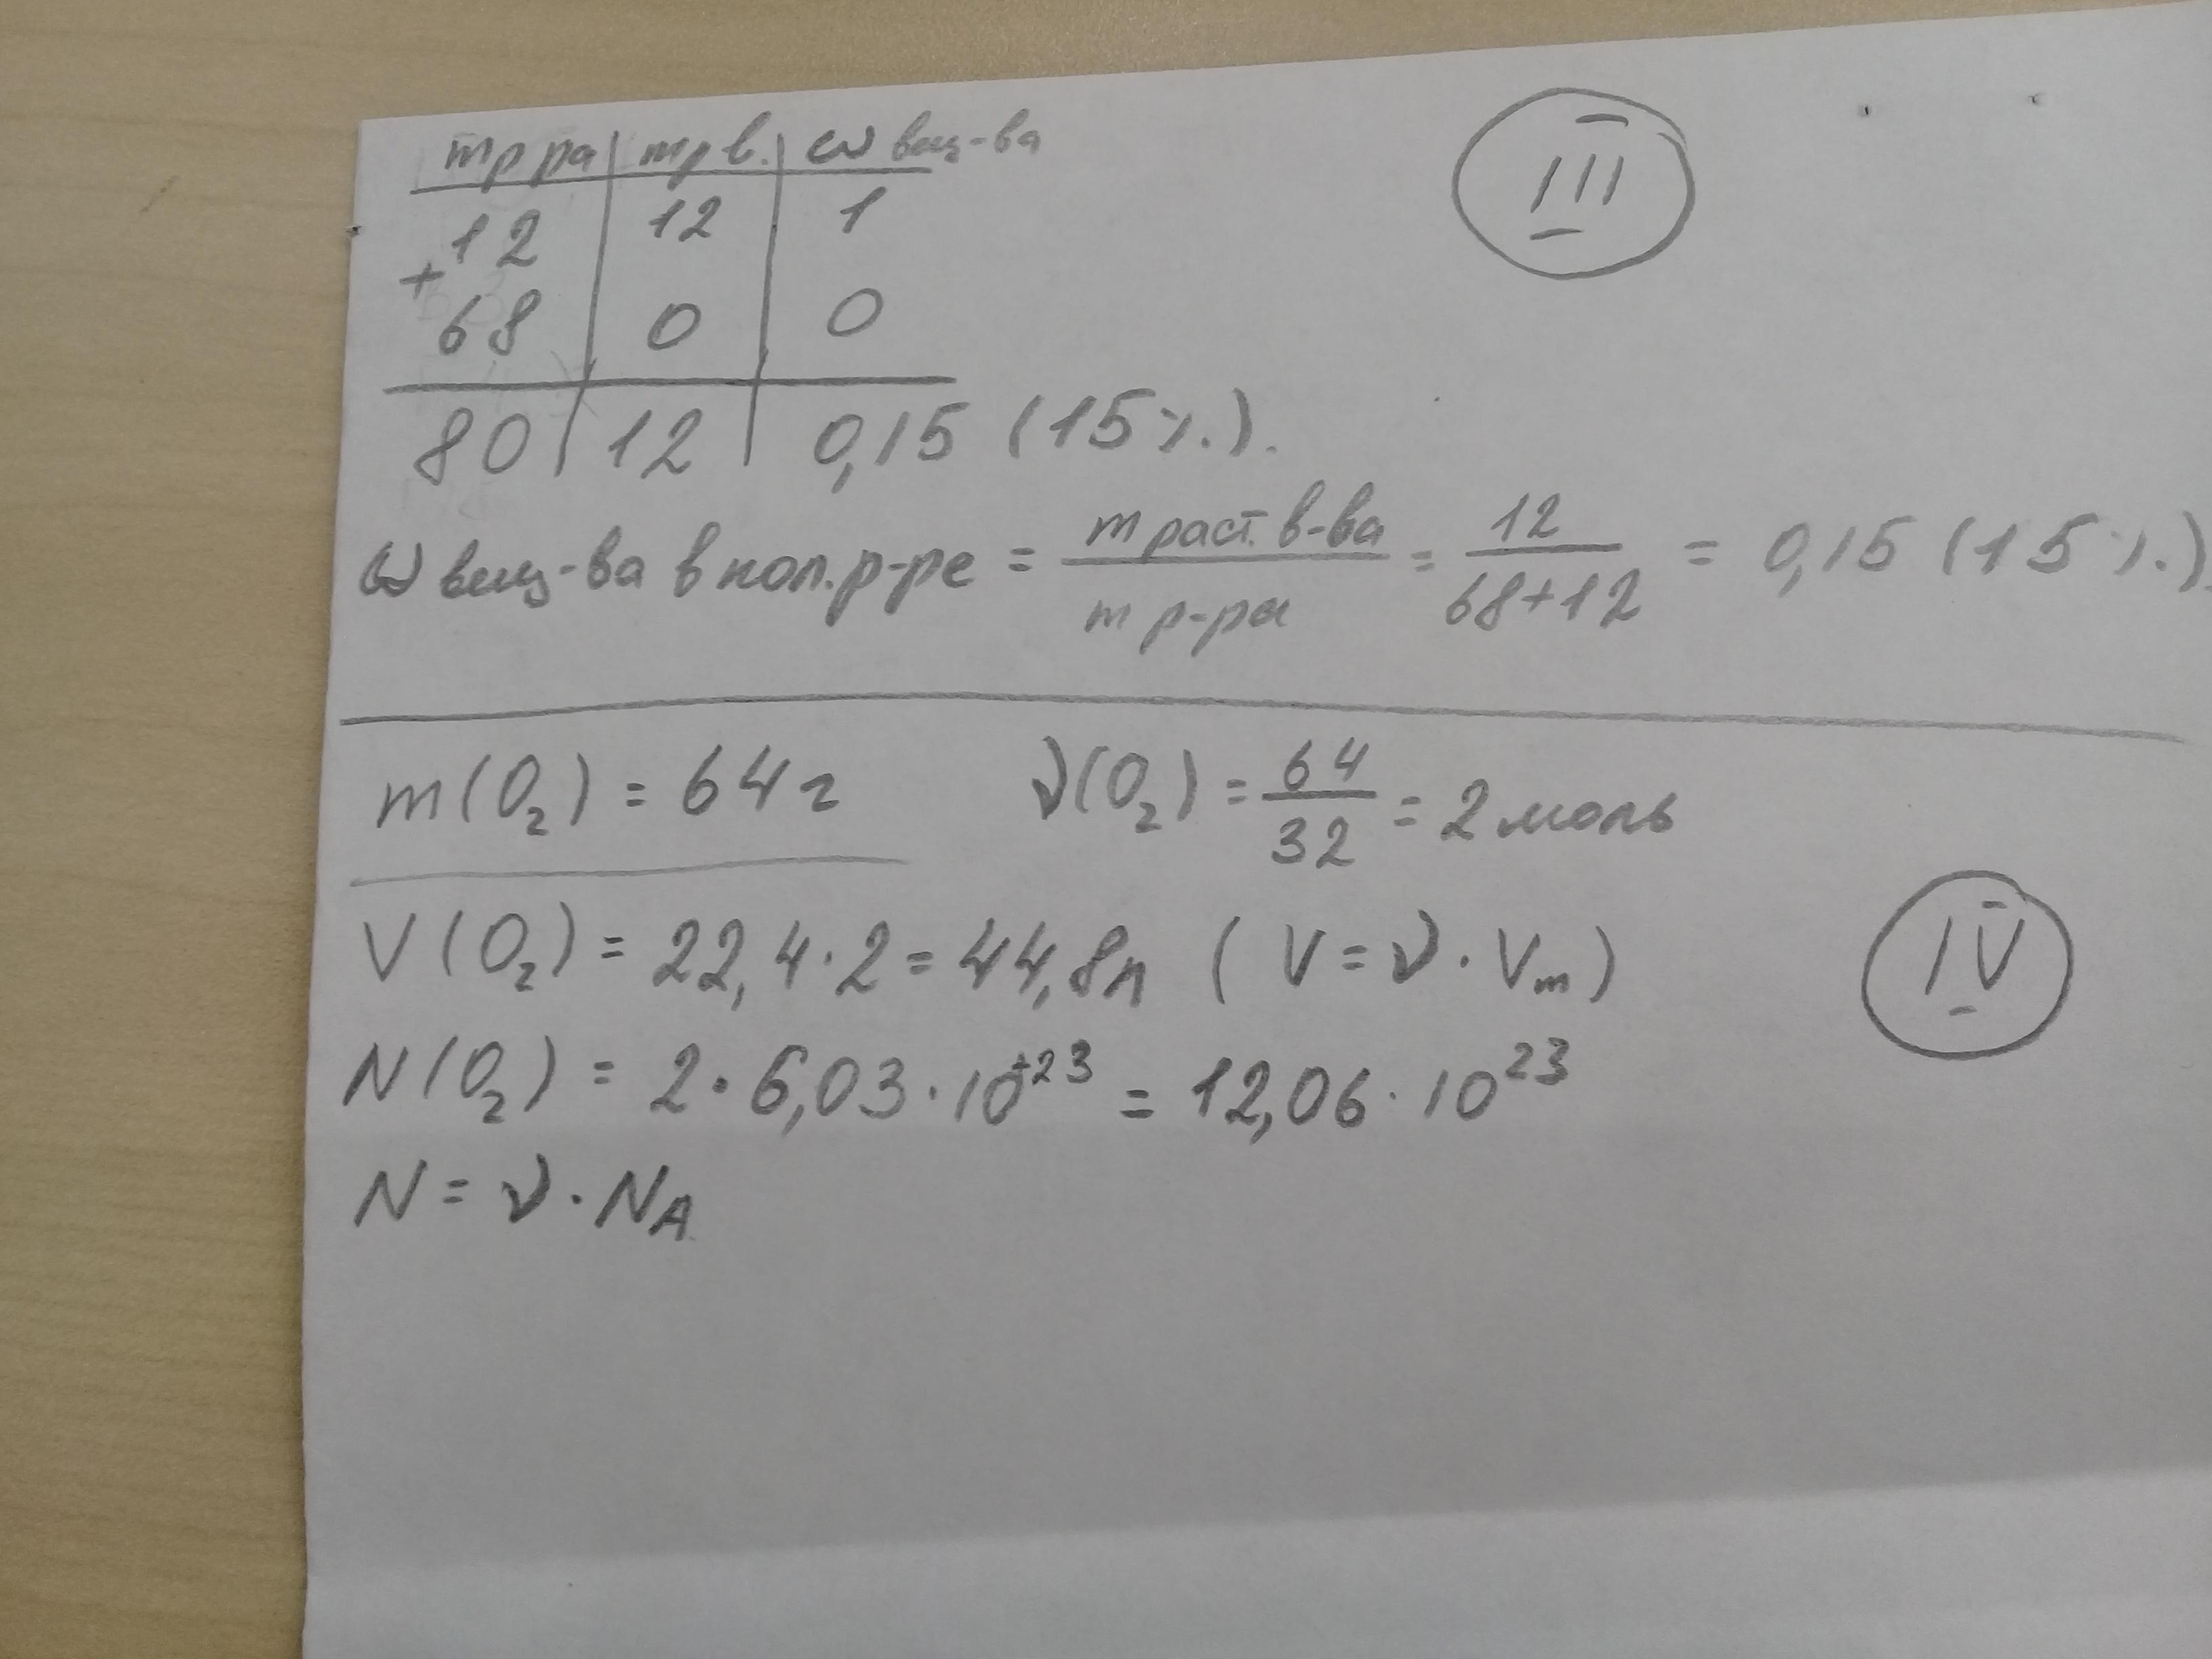 m р ра | m р в. | ω вещ-ва
III
12 | 12 | 1
+
68 | 0 | 0
80 | 12 | 0,15 (15%.).
ω вещ-ва в кол. р-ре = m раст. в-ва / m р-ра = 12 / 68+12 = 0,15 (15%.).
m(O₂) = 64 г    ν(O₂) = 64 / 32 = 2 моль
V(O₂) = 22,4·2 = 44,8л ( V = ν · Vm )
IV
N(O₂) = 2 · 6,03 · 10⁺²³ = 12,06 · 10²³
N = ν · NA